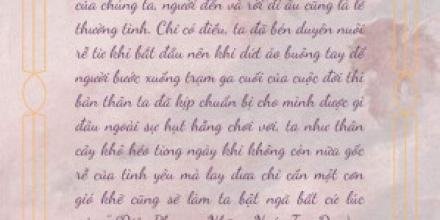 của chúng ta, người đến và rời đi âu cũng là lẽ
thường tình. Chỉ có điều, ta đã bén duyên nuôi
rễ từ khi bắt đầu nên khi dứt áo buông tay để
người bước xuống trạm ga cuối của cuộc đời thì
bản thân ta đã kịp chuẩn bị cho mình được gì
đâu ngoài sự hụt hẫng chơi vơi, ta như thân
cây khô héo từng ngày khi không còn nữa gốc
rễ của tình yêu mà lay đưa chỉ cần một cơn
gió khẽ cũng sẽ làm ta bật ngã bất cứ lúc